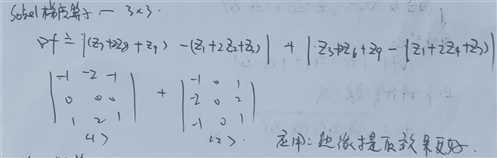 Sobel梯度算子 — 3×3.
∇f ≐ |(z₇+2z₈+z₉) -(z₁+2z₂+z₃)| + |z₃+2z₆+z₉ - (z₁+2z₄+z₇)|
-1 -2 -1 -1 0 1
0 0 0 + -2 0 2
1 2 1 -1 0 1
<1> <2> 应用: 边缘提取效果更好.